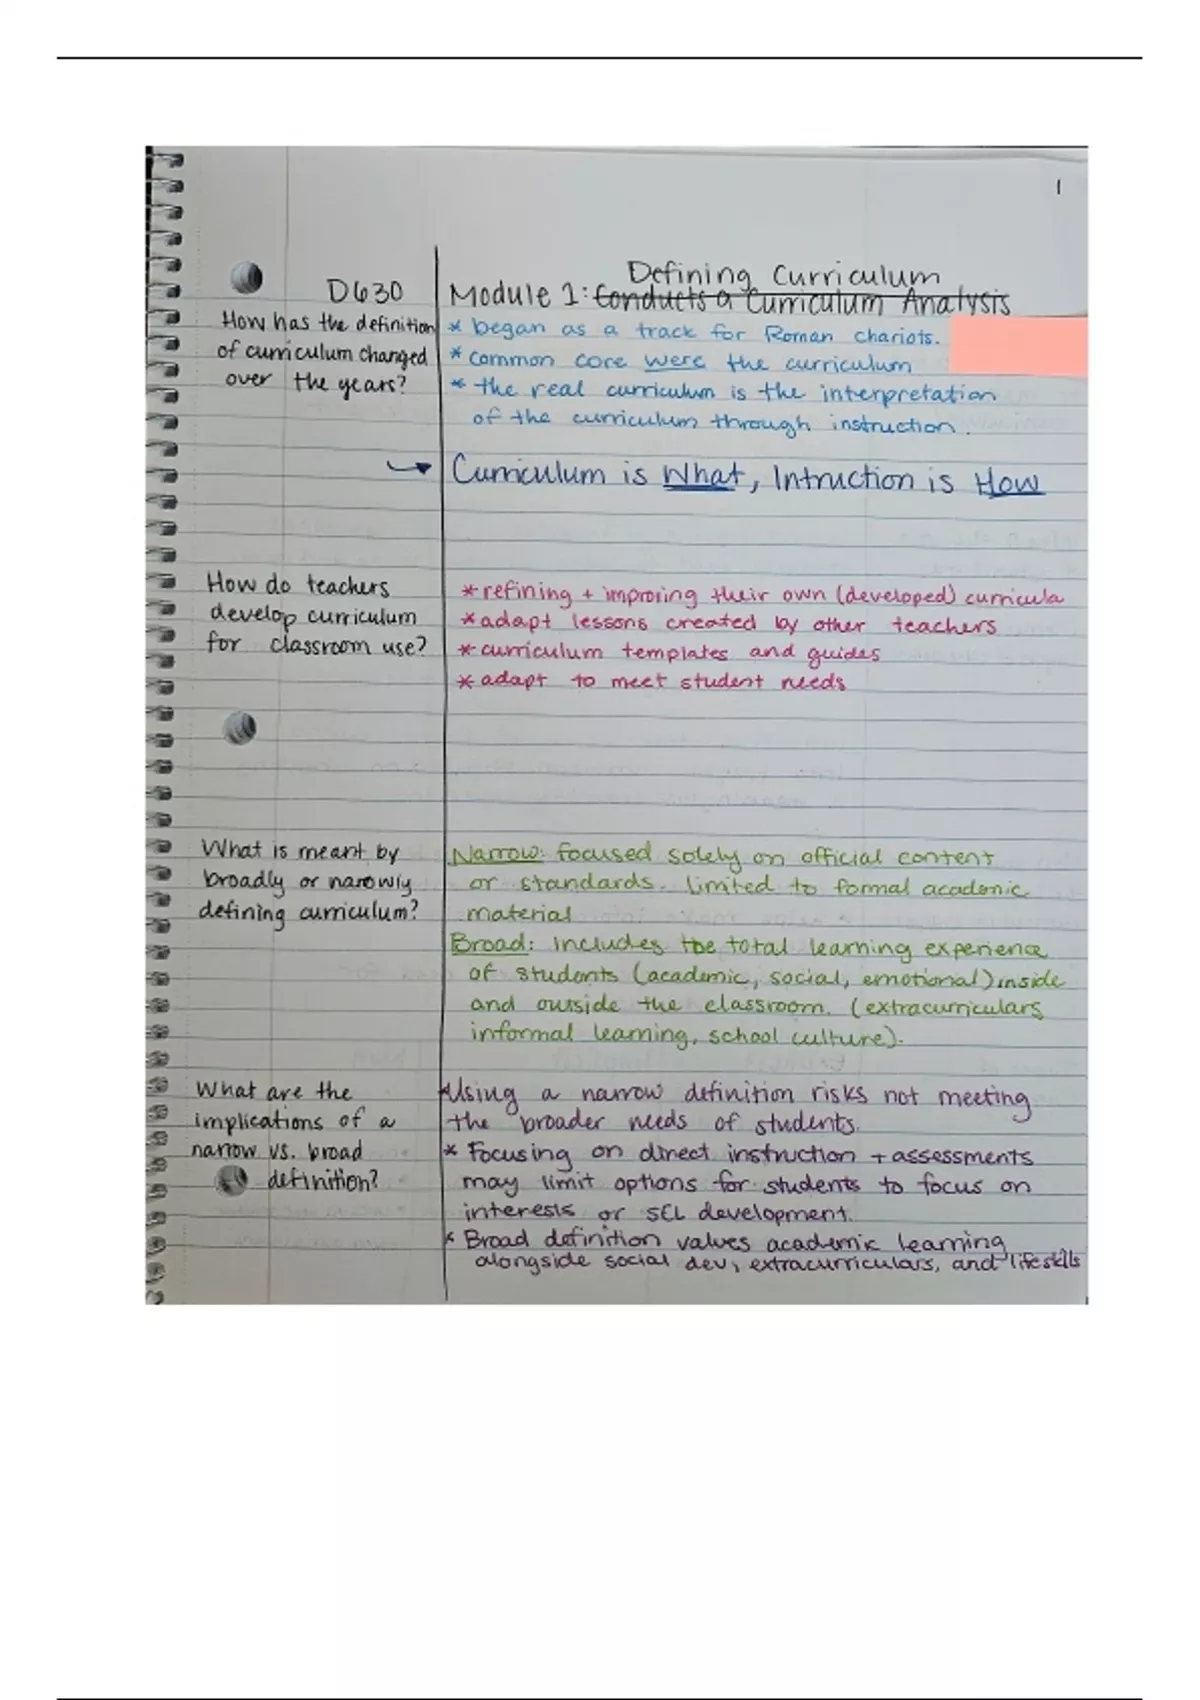 1
Defining Curriculum
D630
Module 1: Conducts a Curriculum Analysis
How has the definition
of curriculum changed
over the years?
* began as a track for Roman chariots.
* common core were the curriculum
* the real curriculum is the interpretation
of the curriculum through instruction.
→ Curriculum is What, Intruction is How
How do teachers
develop curriculum
for classroom use?
* refining + improring their own (developed) curricula
* adapt lessons created by other teachers
* curriculum templates and guides
* adapt to meet student needs
What is meant by
broadly or narowly
defining curriculum?
Narrow: focused solely on official content
or standards. limited to formal academic
material
Broad: includes the total learning experience
of students (academic, social, emotional) inside
and outside the classroom. (extracurriculars,
informal learning, school culture).
What are the
implications of a
narrow vs. broad
definition?
* Using a narrow definition risks not meeting
the broader needs of students.
* Focusing on direct instruction + assessments
may limit options for students to focus on
interests or SEL development.
* Broad definition values academic learning
alongside social dev, extracurriculars, and life skills